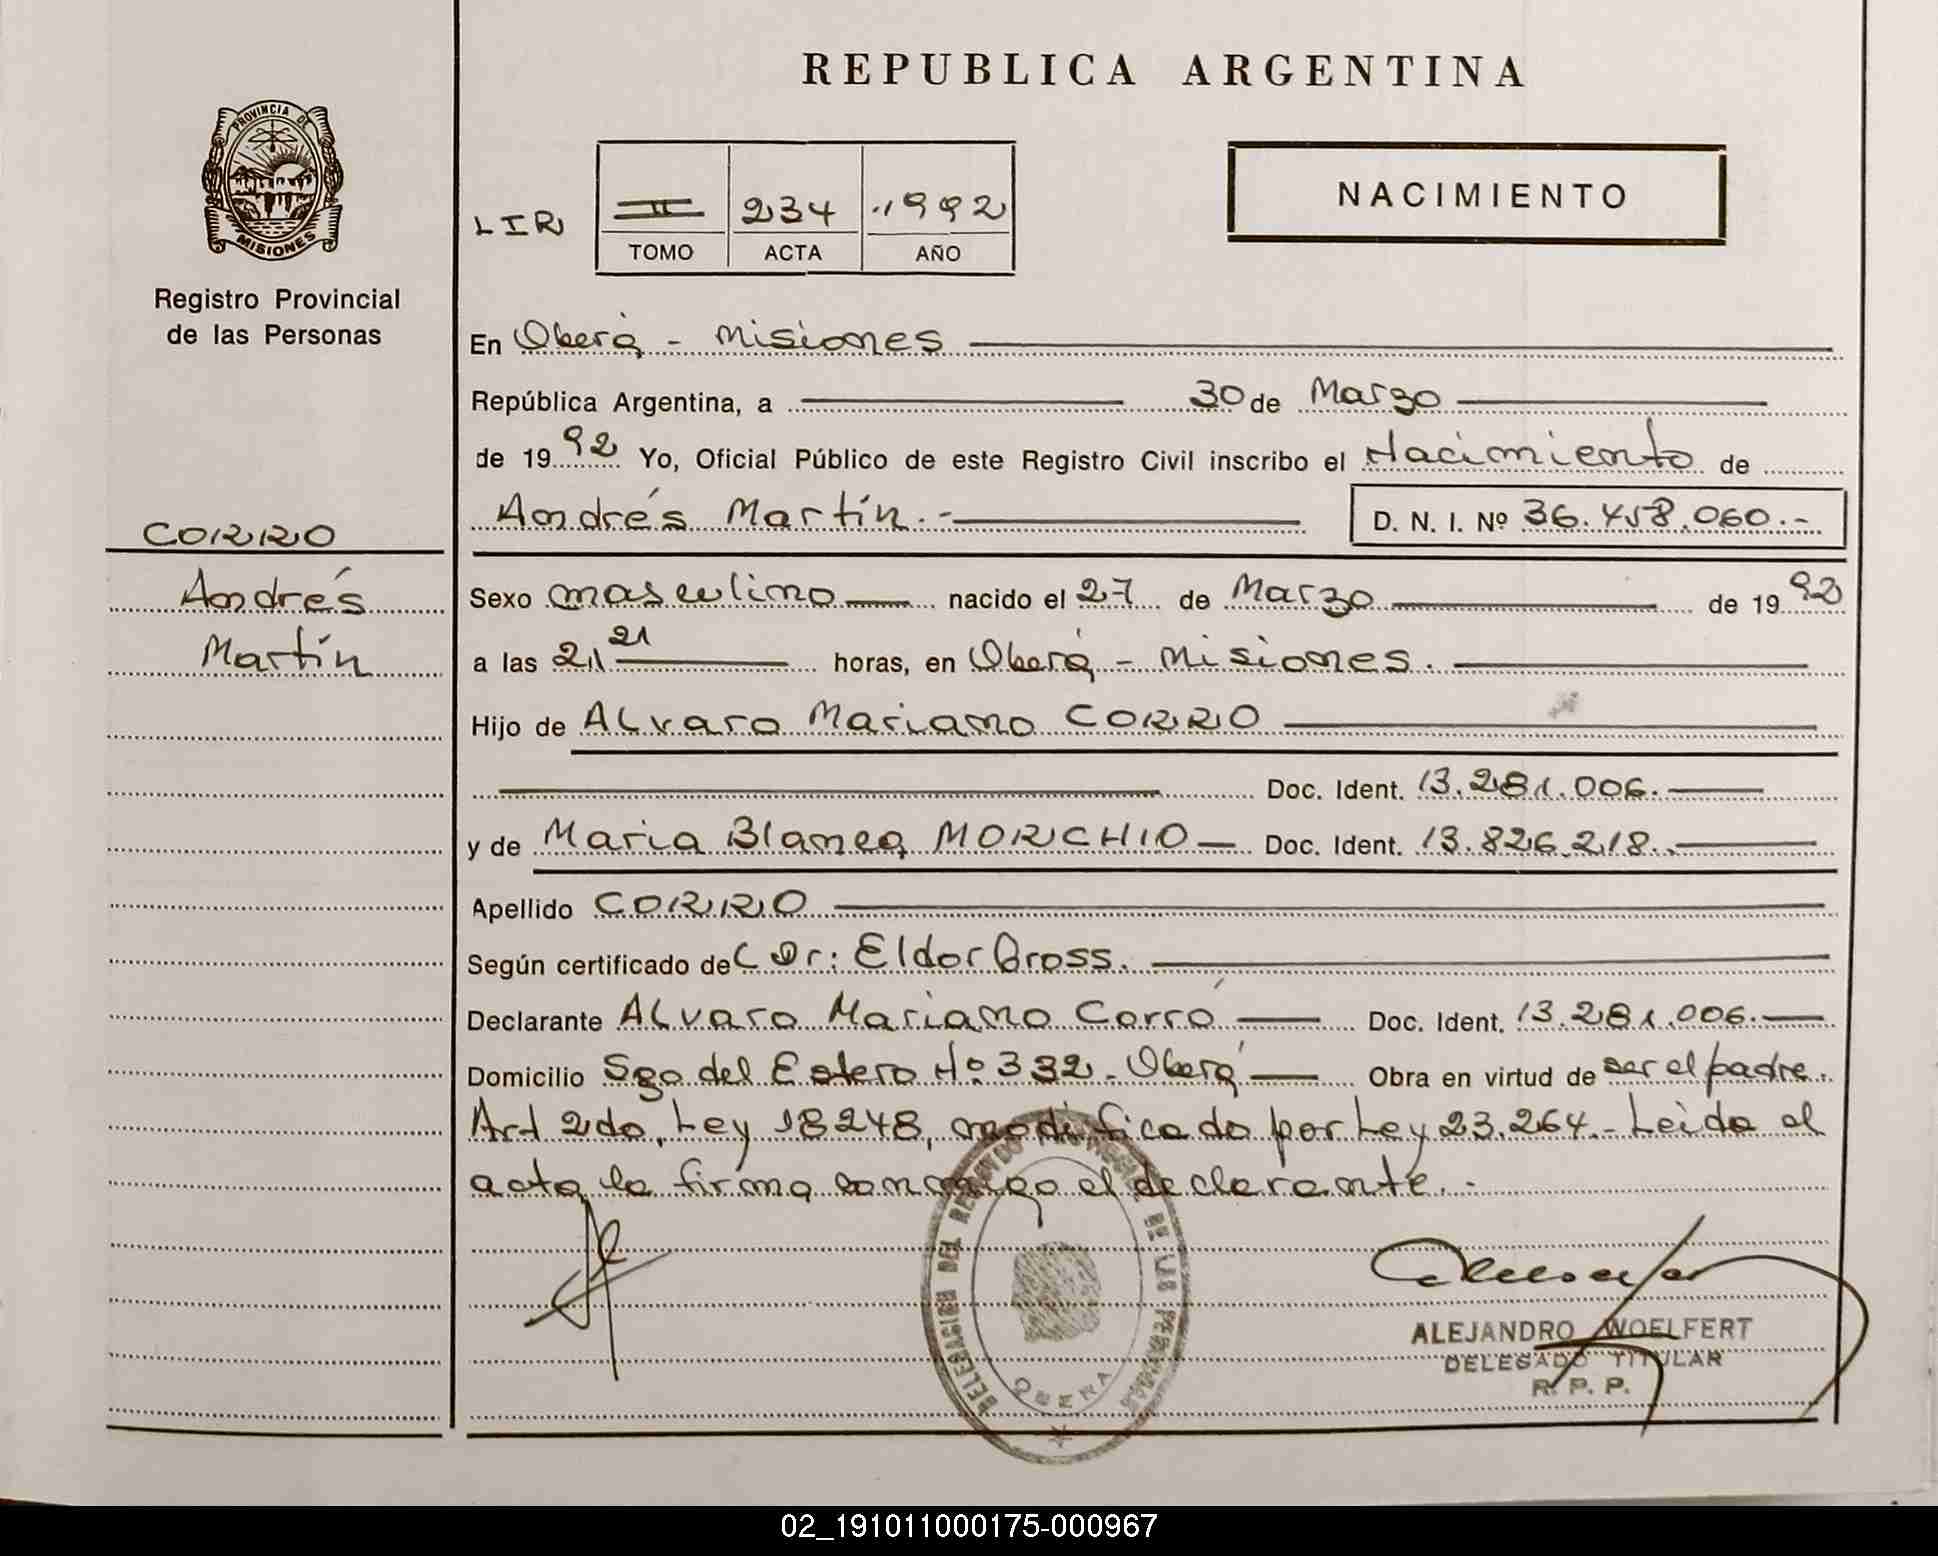 REPUBLICA ARGENTINA
PROVINCIA DE
MISIONES
Registro Provincial
de las Personas
LIR
II 234 1992
TOMO ACTA AÑO
NACIMIENTO
En Oberá - Misiones
República Argentina, a 30 de Marzo
de 1992 Yo, Oficial Público de este Registro Civil inscribo el Nacimiento de
Andrés Martín.- D. N. I. Nº 36.458.060.-
CORRO
Andrés
Martín
Sexo masculino nacido el 27 de Marzo de 1992
a las 21,21 horas, en Oberá - Misiones.
Hijo de ALvaro Mariano CORRO
Doc. Ident. 13.281.006.
y de Maria Blanca MORCHIO Doc. Ident. 13.826.218.
Apellido CORRO
Según certificado de Dr: Eldor Gross.
Declarante ALvaro Mariano Corró Doc. Ident. 13.281.006.
Domicilio Sgo del Estero Nº 332 - Oberá Obra en virtud de ser el padre.
Art 2do, Ley 18248, modificado por Ley 23.264.- Leida el
acta la firma conmigo el declarante.-
DELEGACION DEL REGISTRO PROVINCIAL DE LAS PERSONAS
OBERA
ALEJANDRO WOELFERT
DELEGADO TITULAR
R. P. P.
02_191011000175-000967